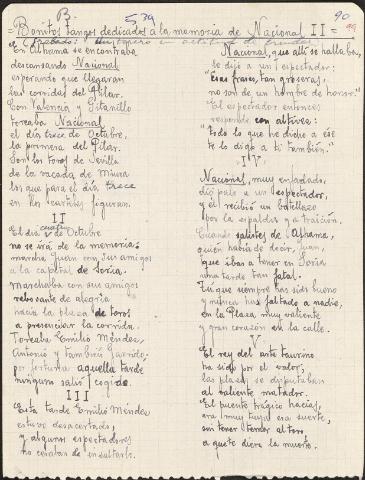 B.
579
90
= Bonitos tangos dedicados a la memoria de Nacional II =
En Alhama se encontraba
descansando Nacional
esperando que llegaran
las corridas del Pilar.
Con Valencia y Gitanillo
toreaba Nacional
el día trece de Octubre,
la primera del Pilar.
Son los toros de Sevilla
de la vacada de Miura
los que para el día trece
en los carteles figuran.
II
El día cuatro de Octubre
no se irá de la memoria:
marcha Juan con sus amigos
a la capital de Soria.
Marchaba con sus amigos
rebosante de alegría
hacia la plaza de toros
a presenciar la corrida.
Toreaba Emilio Méndez,
Antonio y también Garrido;
por fortuna aquella tarde
ninguno salió cogido.
III
Esta tarde Emilio Méndez
estuvo desacertado,
y algunos espectadores
no cesaban de insultarle.
Nacional, que allí se hallaba,
le dijo a un espectador:
"Esas frases, tan groseras,
no son de un hombre de honor."
El espectador entonces
responde con altivez:
"todo lo que he dicho a ése
te lo digo a ti también."
IV
Nacional, muy enfadado,
dió palo a un espectador,
y él recibió un botellazo
por la espalda y a traición.
Cuando salistes de Alhama,
quién había de decir, Juan,
que ibas a tener en Soria
una tarde tan fatal.
Tú que siempre has sido bueno
y nunca has faltado a nadie,
en la Plaza, muy valiente
y gran corazón en la calle.
V
El rey del arte taurino
ha sido por el valor;
las plazas se disputaban
al valiente matador.
El puente trágico hacías,
era muy tuya esa suerte,
sin tener temor al toro
a que te diera la muerte.